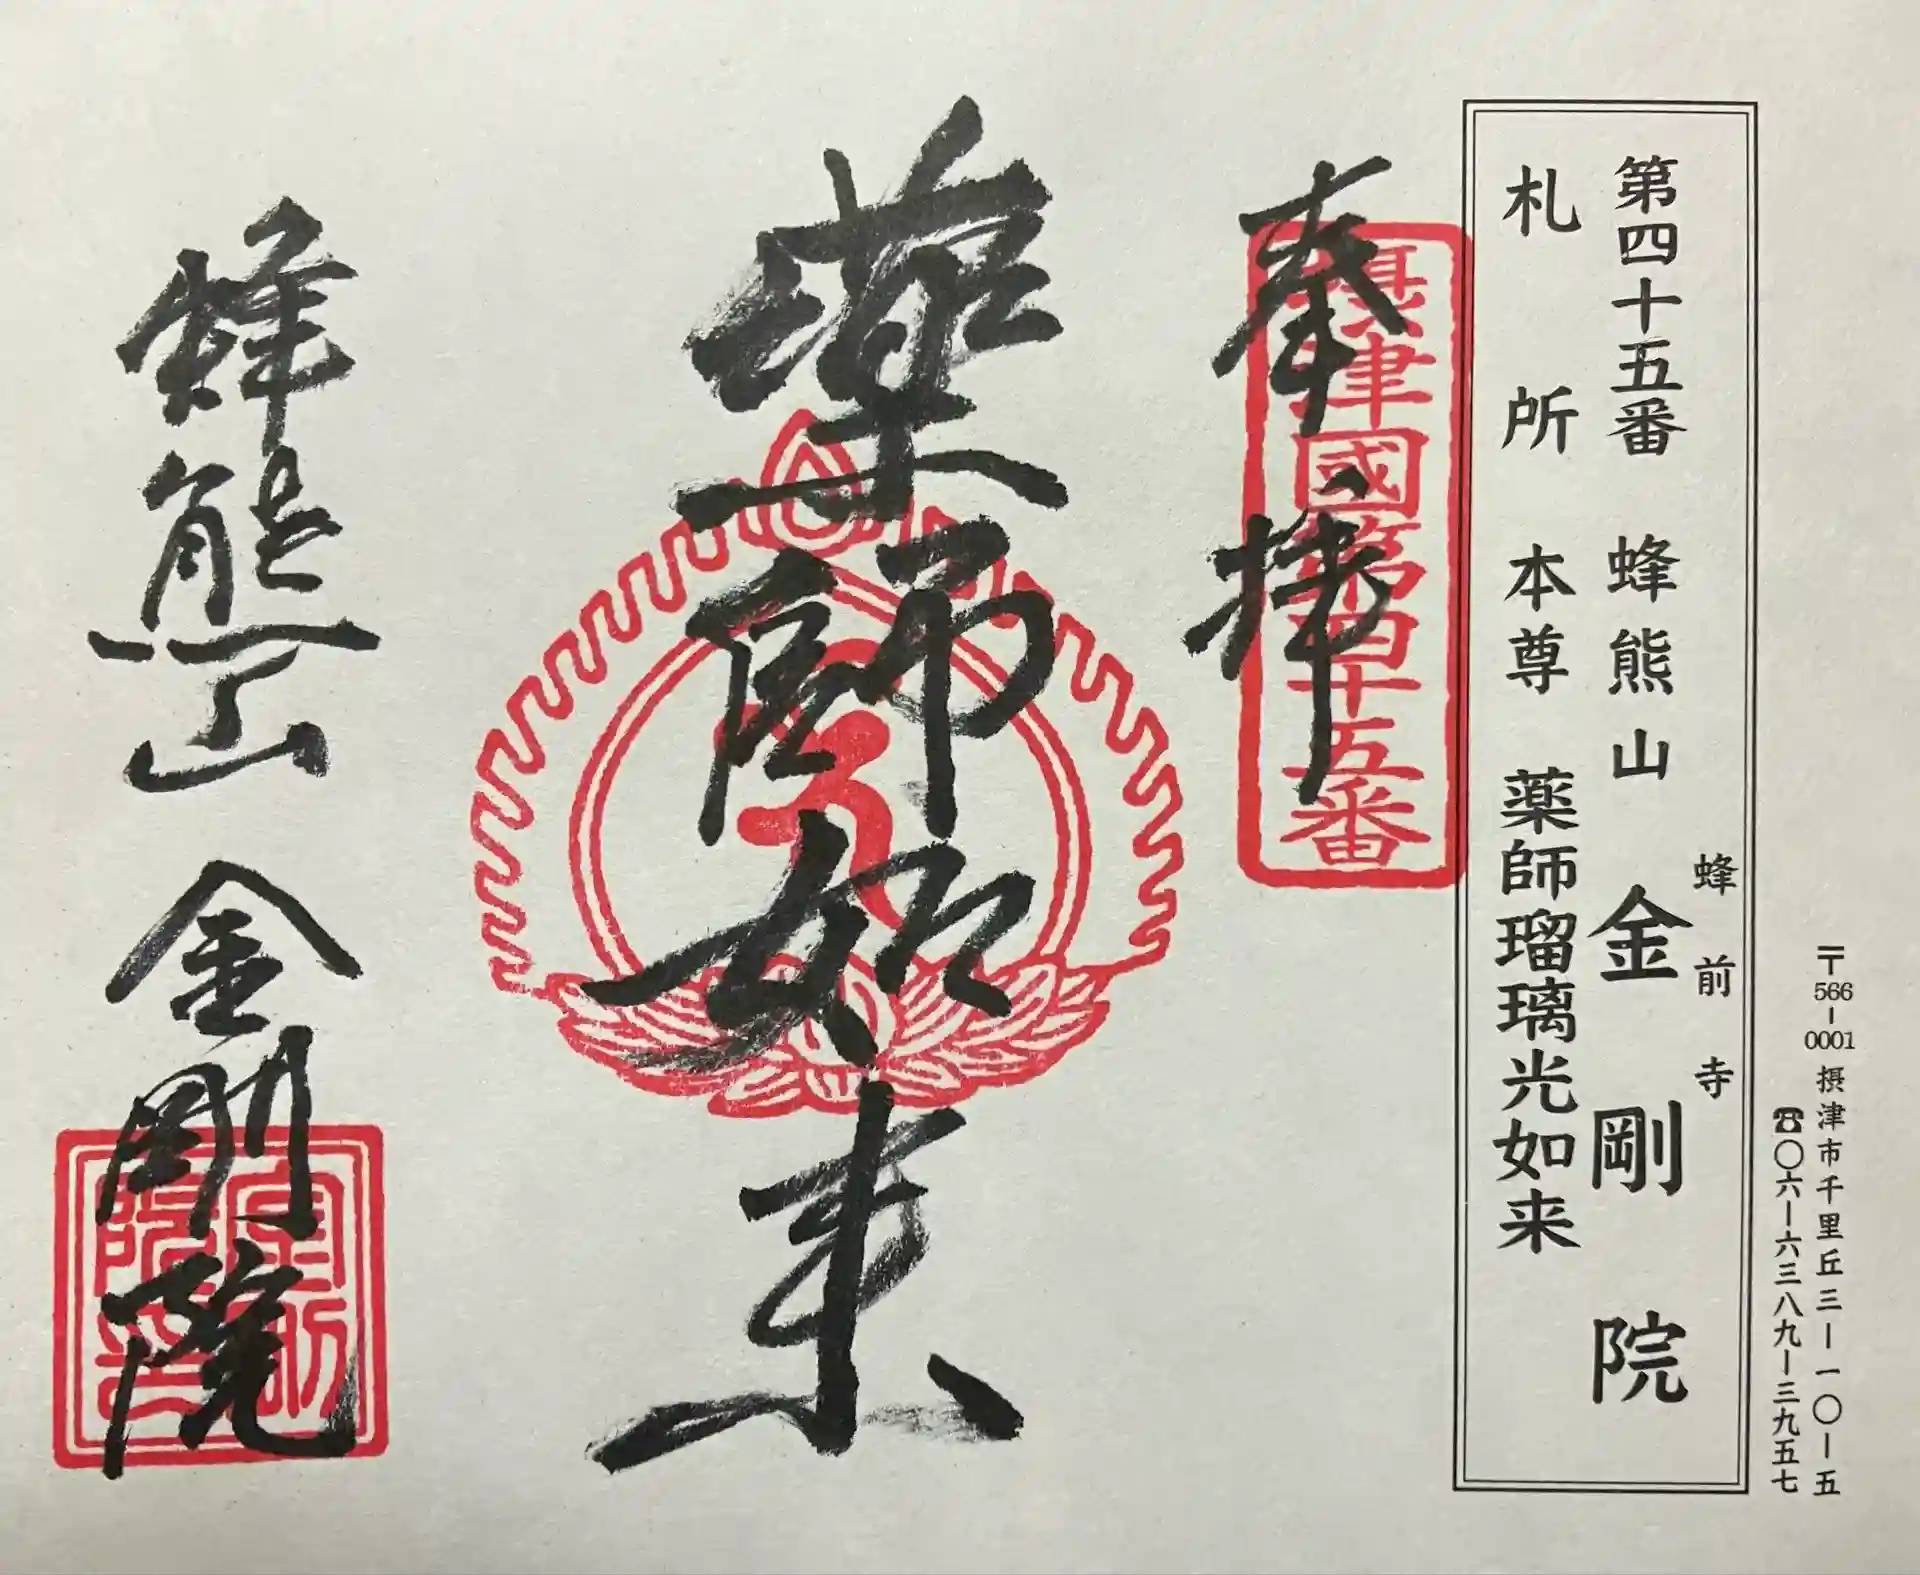 〒566-0001 摂津市千里丘三ー一〇ー五
☎〇六ー六三八九ー三九五七
蜂前寺
第四十五番 蜂熊山 金剛院
札所本尊 薬師瑠璃光如来
奉拝
摂津國第四十五番
薬師如来
蜂熊山 金剛院
金剛院印